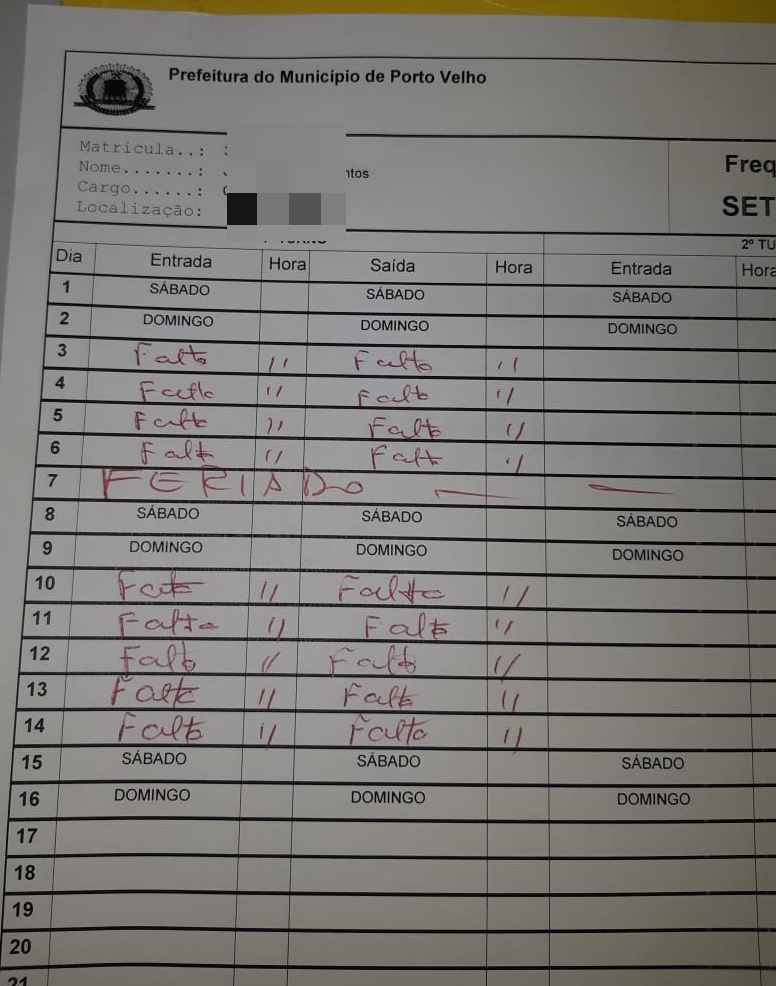 Prefeitura do Município de Porto Velho
Matricula..:
Nome.......: ntos
Cargo......:
Localização:
Freq
SET
TURNO 2º TU
Dia Entrada Hora Saída Hora Entrada Hora
1 SÁBADO SÁBADO SÁBADO
2 DOMINGO DOMINGO DOMINGO
3 Falto 11 Falto 11
4 Falto 11 Falto 11
5 Falto 11 Falto 11
6 Falto 11 Falto 11
7 FERIADO — —
8 SÁBADO SÁBADO SÁBADO
9 DOMINGO DOMINGO DOMINGO
10 Falto 11 Falto 11
11 Falto 11 Falto 11
12 Falto 11 Falto 11
13 Falto 11 Falto 11
14 Falto 11 Falto 11
15 SÁBADO SÁBADO SÁBADO
16 DOMINGO DOMINGO DOMINGO
17
18
19
20
21